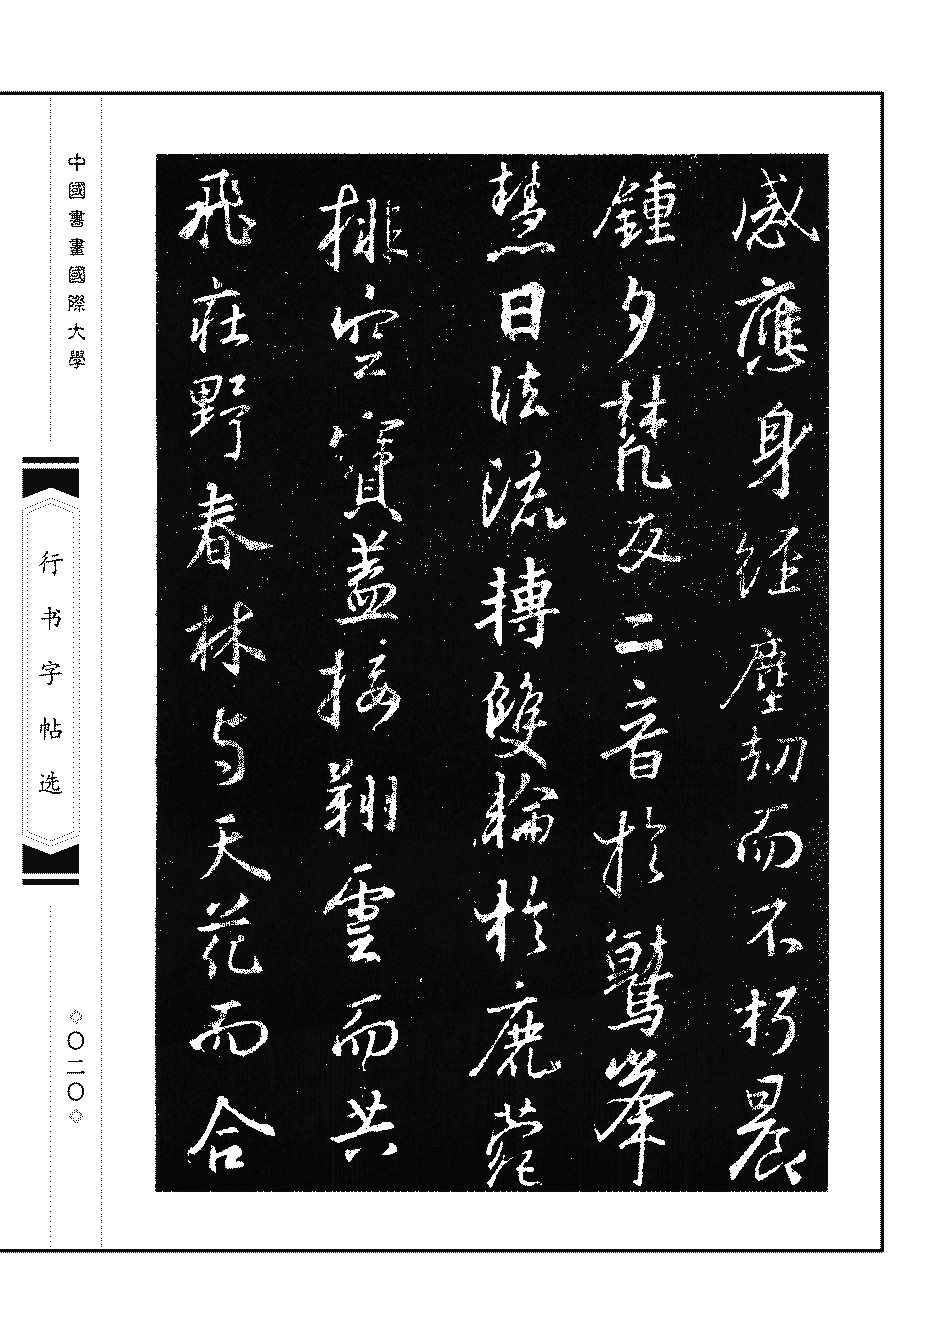 感應身經塵劫而不朽晨
鍾夕梵交二音於鷲峯
慧日法流轉雙輪於鹿菀
排空寶蓋接翔雲而共
飛莊野春林与天花而合
中國書畫國際大學
行书字帖选
◇〇二〇◇